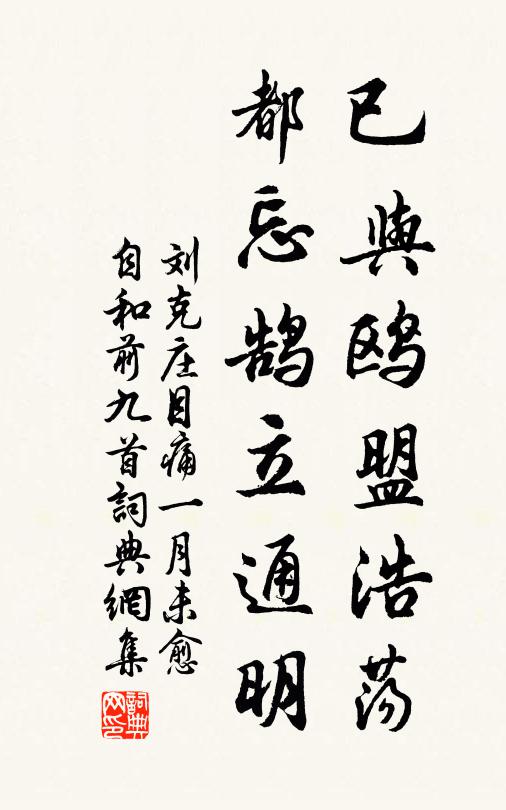 已與鸥盟浩荡
都忘鹄立通明
刘克庄目痛一月未愈
自和前九首詞典網集
詞典网印